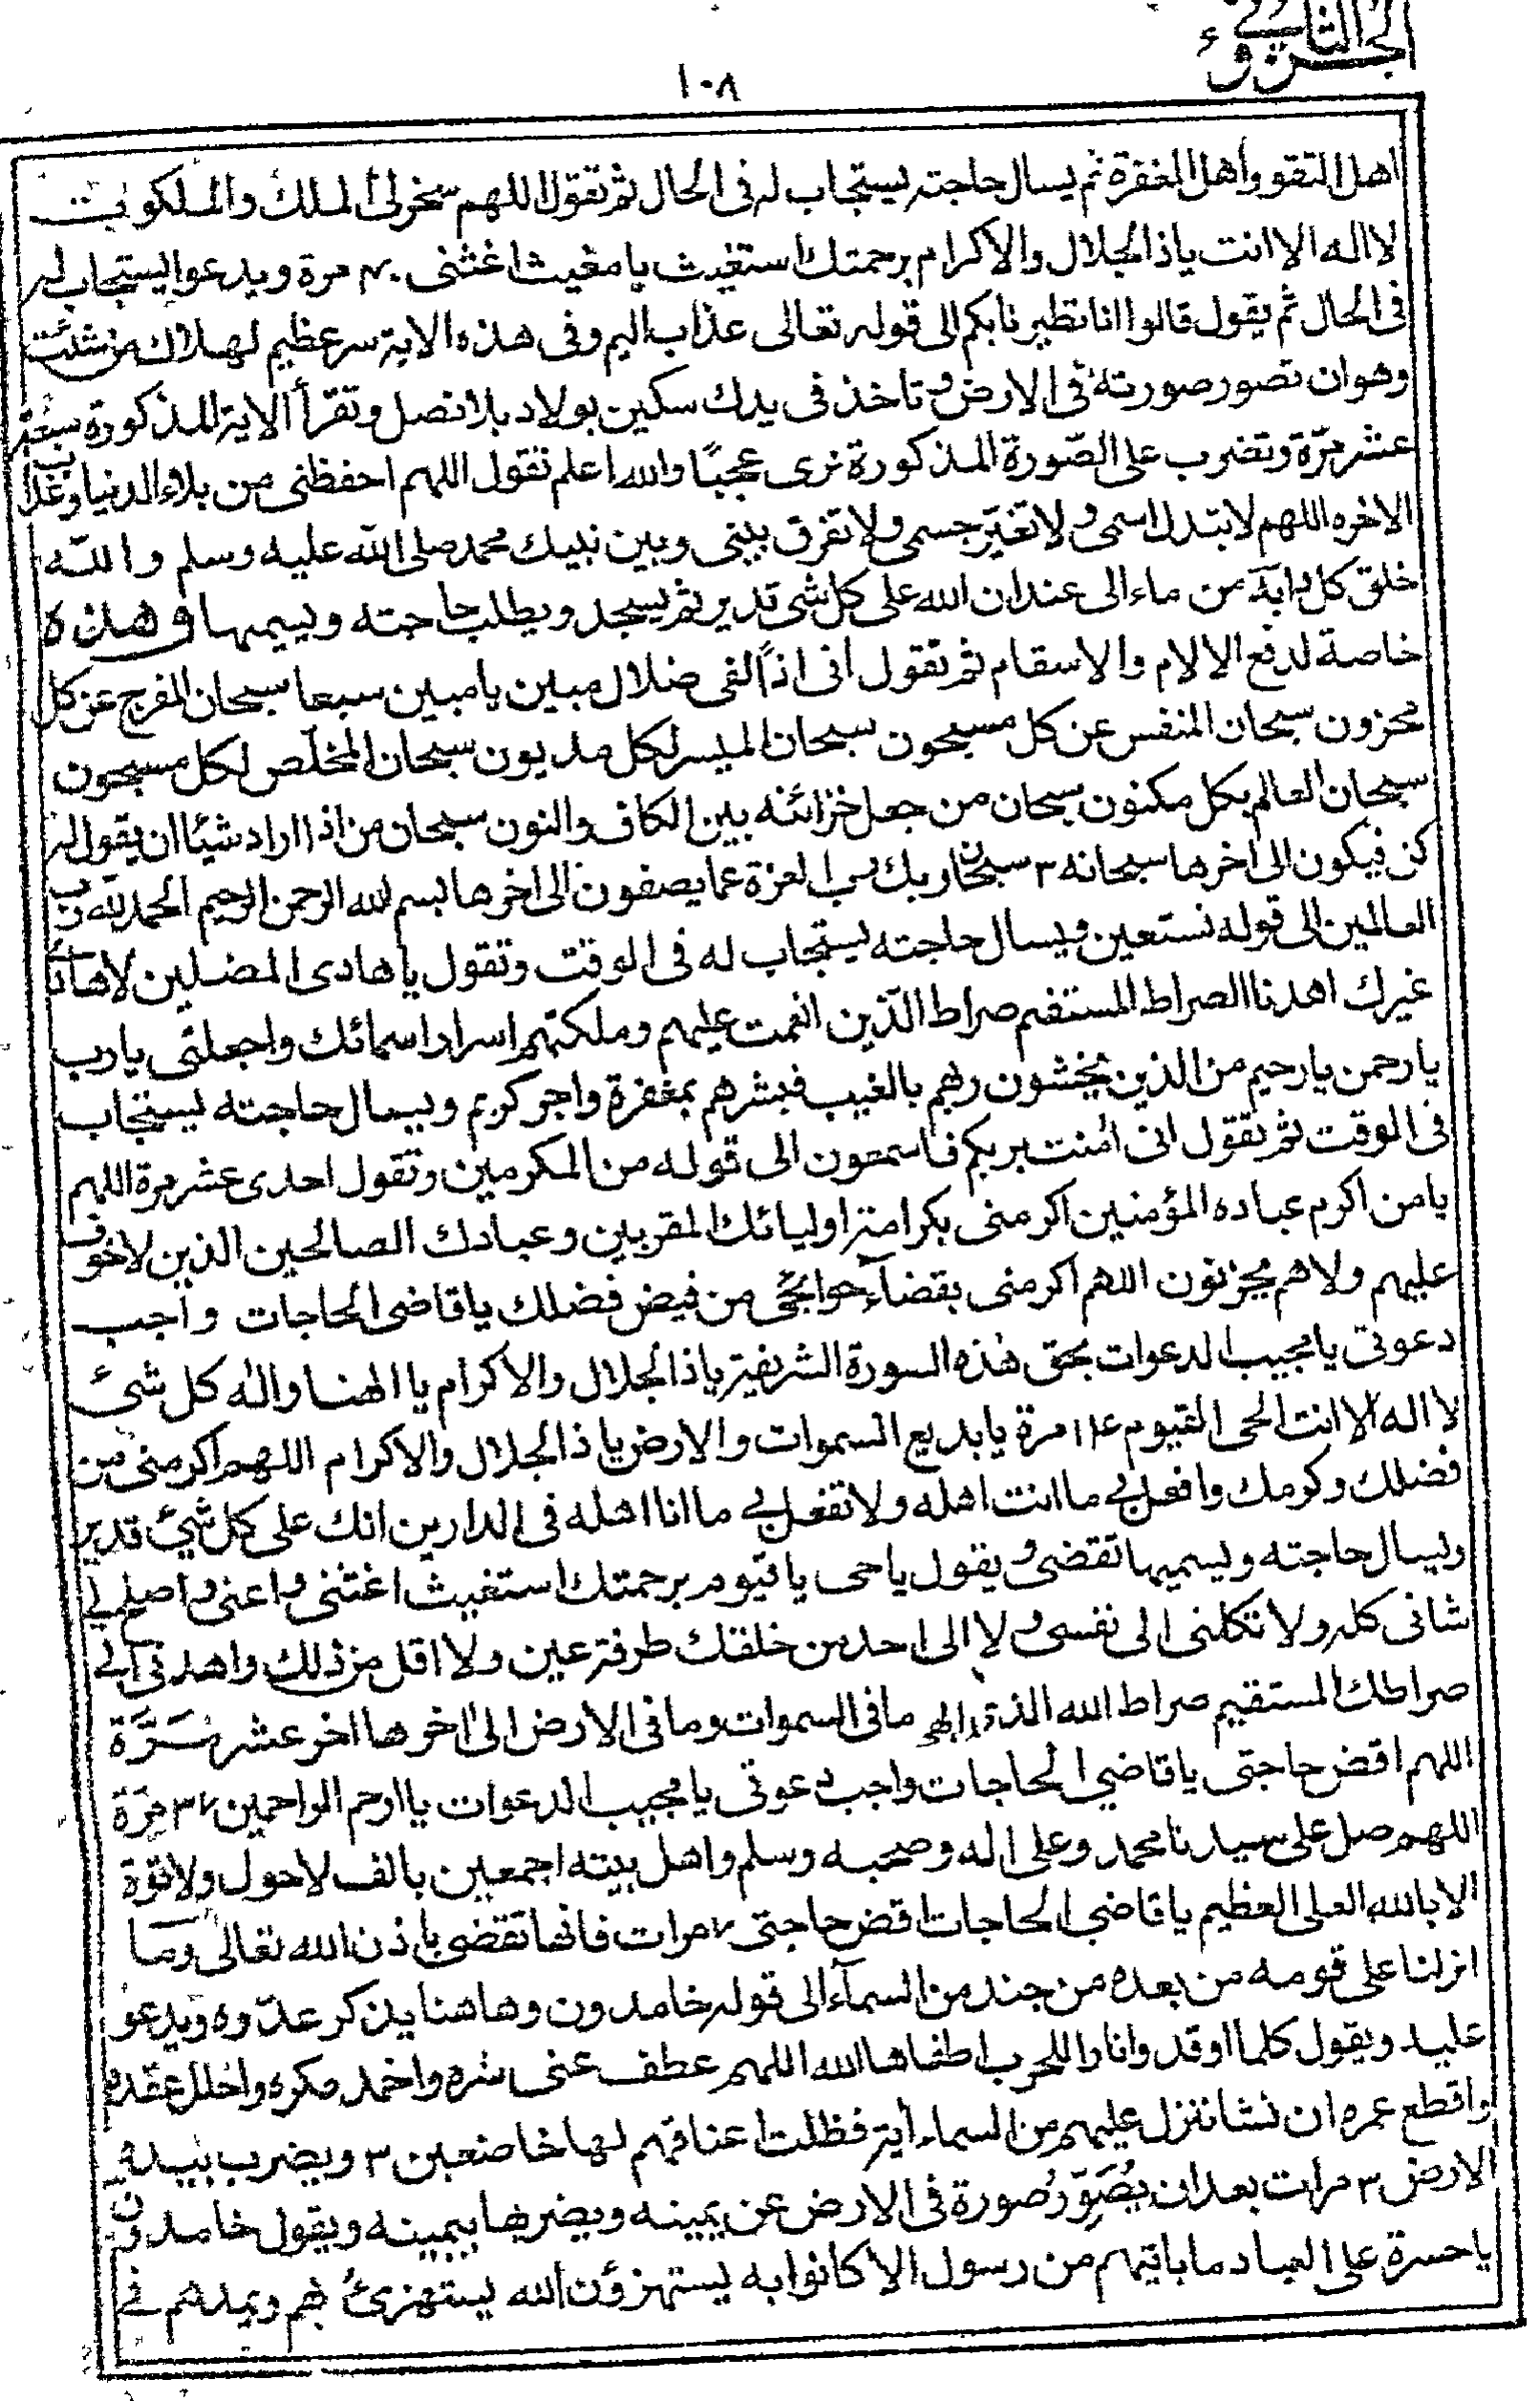 الجزء الثاني
١٠٨
اهل التقو واهل المغفرة ثم يسال حاجته يستجاب له فى الحال ثم تقول اللهم سخر لى الملك والملكوت
لا اله الا انت ياذا الجلال والاكرام برحمتك استغيث يا مغيث اغثنى ٧٠ مرة ويدعوا يستجاب له
فى الحال ثم يقول قالوا انا تطيرنا بكم الى قوله تعالى عذاب اليم وفى هذه الاية سر عظيم لهلاك من شئت
وهوان تصور صورته فى الارض وتاخذ فى يدك سكين بولاد بلا نصل وتقرأ الاية المذكورة سبعة
عشر مرّة وتضرب على الصّورة المذكورة ترى عجبًا والله اعلم تقول اللهم احفظنى من بلاء الدنيا وعذاب
الاخره اللهم لا تبدل اسمى ولا تغير جسمى ولا تفرق بينى وبين نبيك محمد صلى الله عليه وسلم والله
خلق كل دابة من ماء الى عند ان الله على كل شى قدير ثم يسجد ويطلب حاجته ويسيمها وفى هذه
خاصة لدفع الالام والاسقام ثم تقول انى اذًا لفى ضلال مبين يا مبين سبعا سبحان المفرج عن كل
محزون سبحان المنفس عن كل مسجون سبحان الميسر لكل مديون سبحان المخلّص لكل مسجون
سبحان العالم بكل مكنون سبحان من جعل خزائنه بين الكاف والنون سبحان من اذا اراد شيئا ان يقول له
كن فيكون الى اخرها سبحانه ٣ سبحان ربك رب العزة عما يصفون الى اخرها بسم الله الرحمن الرحيم الحمد لله رب
العالمين الى قوله نستعين ويسال حاجته يستجاب له فى الوقت وتقول يا هادى المضلين لا هادى
غيرك اهدنا الصراط المستقيم صراط الذين انعمت عليهم وملكتهم اسرار اسمائك واجعلنى يا رب
يا رحمن يا رحيم من الذين يخشون ربهم بالغيب فبشرهم بمغفرة واجر كريم ويسال حاجته يستجاب
فى الوقت ثم يقول انى امنت بربكم فاسمعون الى قوله من المكرمين وتقول احدى عشر مرة اللهم
يا من اكرم عباده المؤمنين اكرمنى بكرامة اوليائك المقربين وعبادك الصالحين الذين لا خوف
عليهم ولا هم يحزنون اللهم اكرمنى بقضاء حوائجى من فيض فضلك يا قاضى الحاجات واجب
دعوتى يا مجيب الدعوات بحق هذه السورة الشريفة ياذا الجلال والاكرام يا الهنا واله كل شئ
لا اله الا انت الحى القيوم ١١٤ مرة يا بديع السموات والارض يا ذا الجلال والاكرام اللهم اكرمنى من
فضلك وكرمك وافعل بي ما انت اهله ولا تفعل بي ما انا اهله فى الدارين انك على كل شئ قدير
ويسال حاجته ويسميها تقضى ويقول يا حى يا قيوم برحمتك استغيث اغثنى واعنى واصلح لي
شانى كله ولا تكلنى الى نفسى ولا الى احد من خلقك طرفة عين ولا اقل من ذلك واهدنى الى
صراطك المستقيم صراط الله الذى له ما فى السموات وما فى الارض الى اخرها اخر عشر مَرَّة
اللهم اقض حاجتى يا قاضي الحاجات واجب دعوتى يا مجيب الدعوات يا ارحم الراحمين ٣٧ مرّة
اللهم صل على سيدنا محمد وعلى اله وصحبه وسلم واهل بيته اجمعين بالف لا حول ولا قوة
الا بالله العلى العظيم يا قاضي الحاجات اقض حاجتى ٧ مرات فانها تقضى باذن الله تعالى وما
انزلنا على قومه من بعده من جند من السمآء الى قوله خامدون وهاهنا يذكر عدّوه ويدعو
عليه ويقول كلما اوقدوا نارا للحرب اطفاها الله اللهم عطف عنى شره واخمد مكره واحلل عقده
واقطع عمره ان نشا ننزل عليهم من السماء اية فظلت اعناقهم لها خاضعين ٣ ويضرب بيده
الارض ٣ مرات بعد ان يُصَوِّرُ صورة فى الارض عن يمينه ويضربها بيمينه ويقول خامدون
يا حسرة على العباد ما ياتيهم من رسول الا كانوا به يستهزؤن الله يستهزئ بهم ويمدهم في